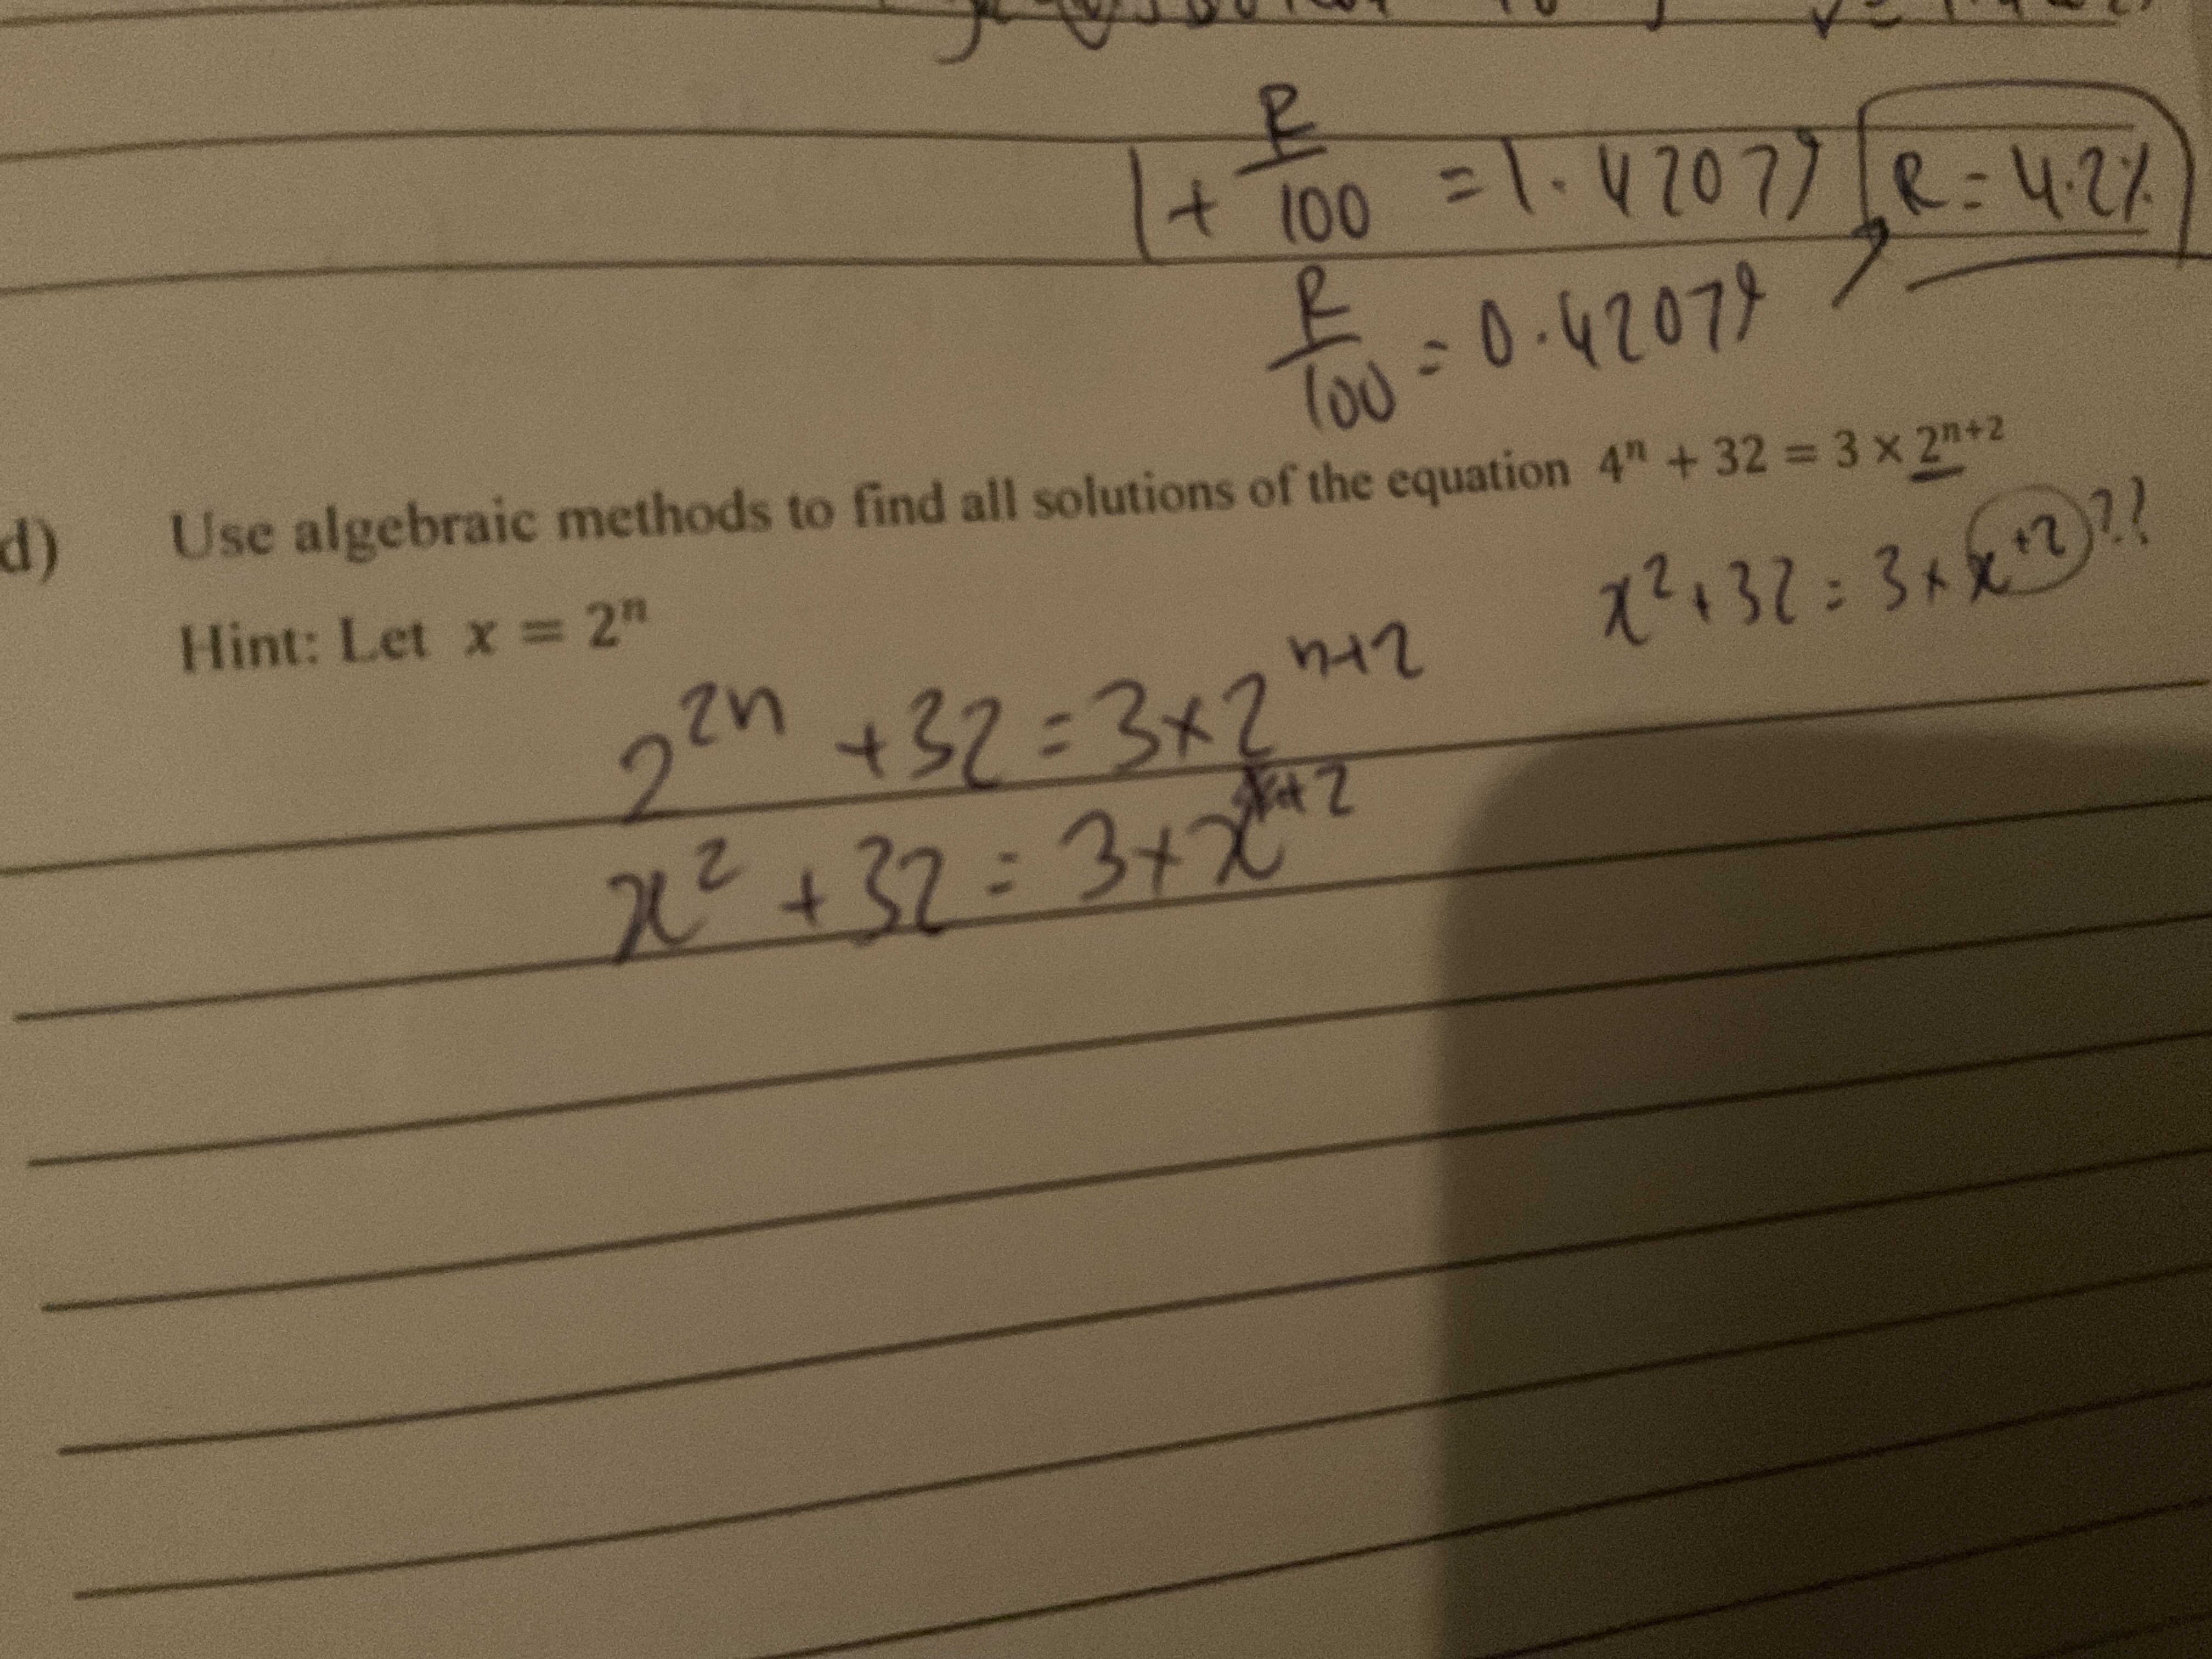 1 + R/100 = 1.42079 R = 4.2%
R/100 = 0.42079
d) Use algebraic methods to find all solutions of the equation 4ⁿ + 32 = 3 × 2ⁿ⁺²
x² + 32 = 3 × x⁺² ??
Hint: Let x = 2ⁿ
2²ⁿ + 32 = 3 × 2ⁿ⁺²
x² + 32 = 3 × x⁺²